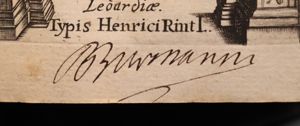 Leoardiæ.
Typis Henrici Rint I..
PBurmanni